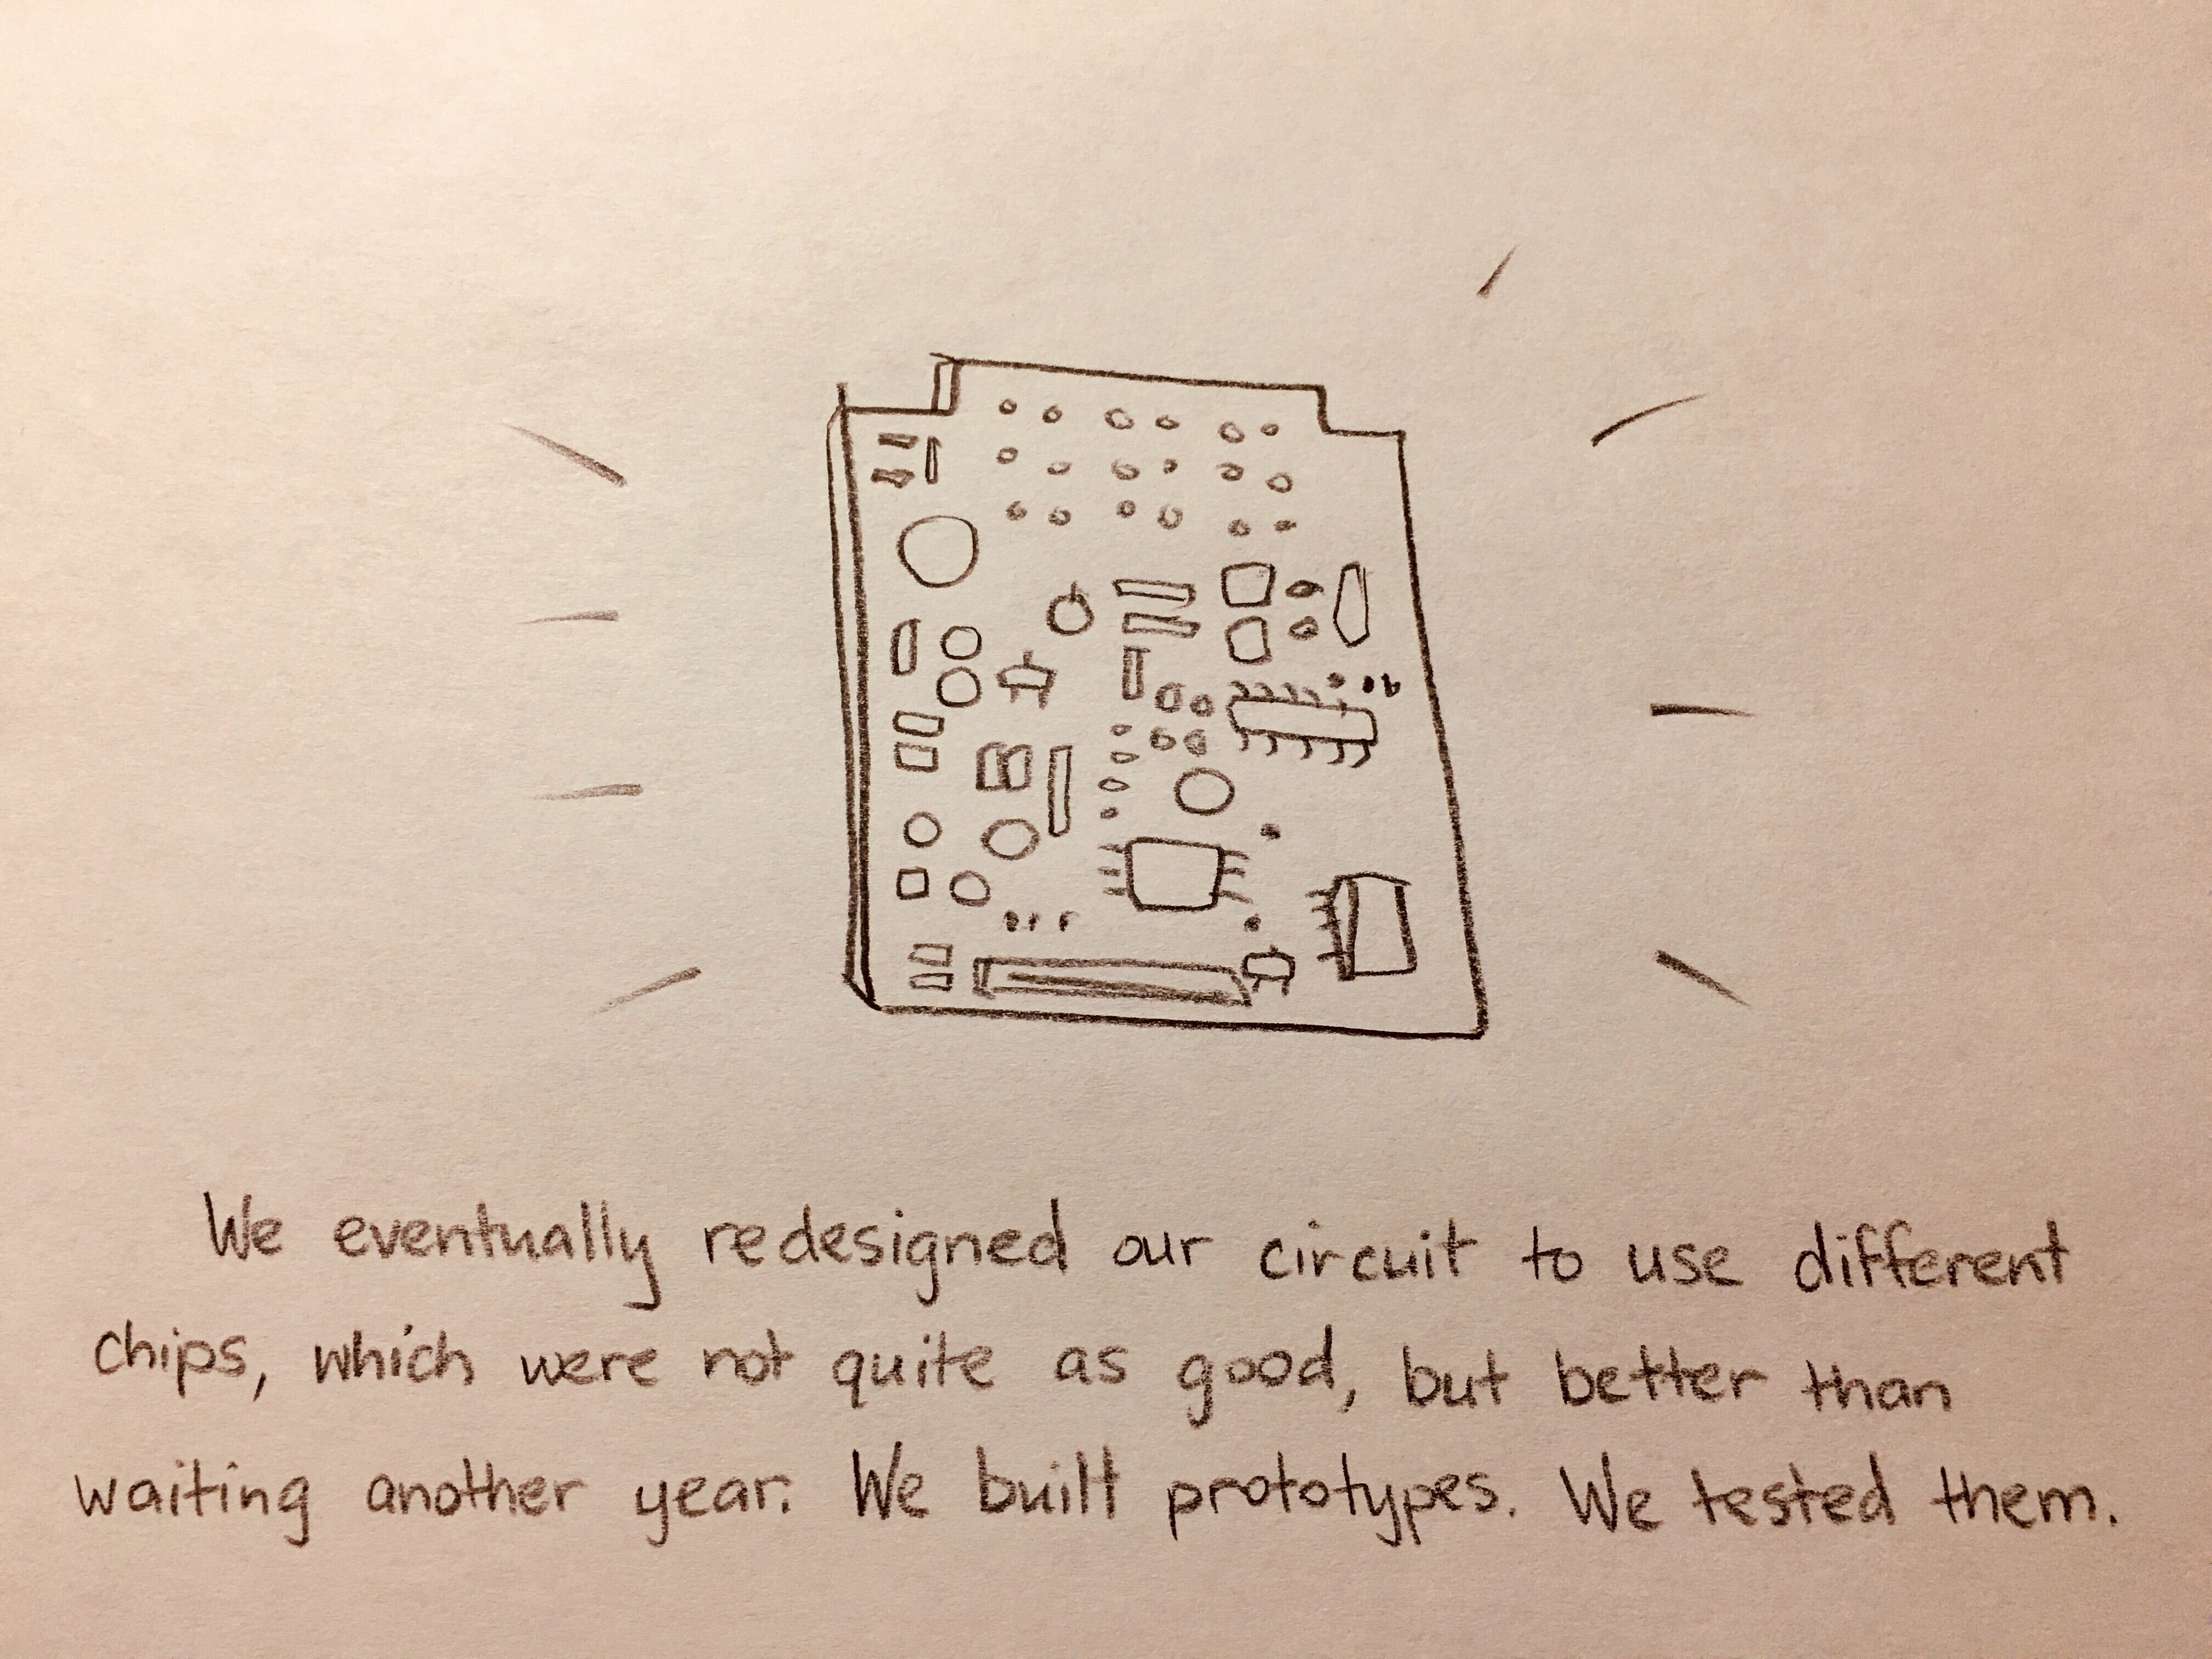 We eventually redesigned our circuit to use different
chips, which were not quite as good, but better than
waiting another year. We built prototypes. We tested them.